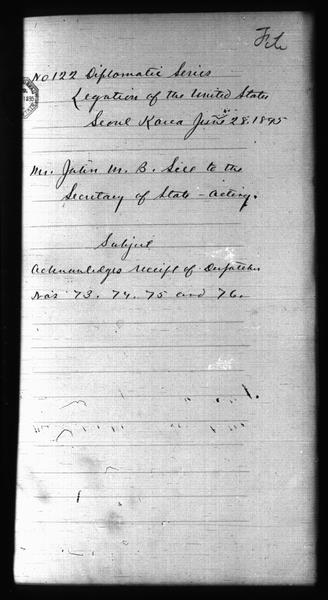 File
No 122 Diplomatic Series
Legation of the United States
Seoul Korea June 28. 1895
Mr. John M. B. Sill to the
Secretary of State - acting.
Subject
Acknowledges receipt of Despatches
Nos 73. 74. 75 and 76.